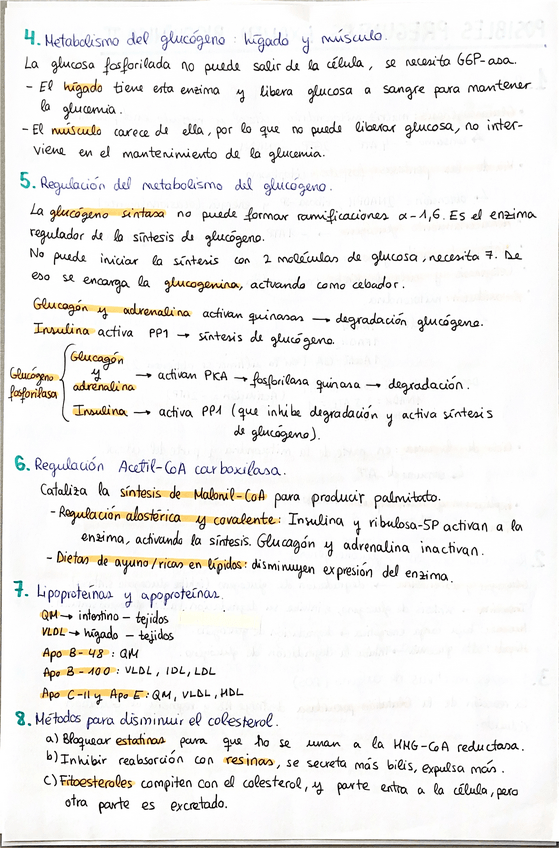 4. Metabolismo del glucógeno: hígado y músculo.
La glucosa fosforilada no puede salir de la célula, se necesita G6P-asa.
- El hígado tiene esta enzima y libera glucosa a sangre para mantener
la glucemia.
- El músculo carece de ella, por lo que no puede liberar glucosa, no inter-
viene en el mantenimiento de la glucemia.
5. Regulación del metabolismo del glucógeno.
La glucógeno sintasa no puede formar ramificaciones α-1,6. Es el enzima
regulador de la síntesis de glucógeno.
No puede iniciar la síntesis con 2 moléculas de glucosa, necesita 7. De
eso se encarga la glucogenina, actuando como cebador.
Glucagón y adrenalina activan quinasas → degradación glucógeno.
Insulina activa PP1 → síntesis de glucógeno.
Glucógeno fosforilasa { Glucagón y adrenalina → activan PKA → fosforilasa quinasa → degradación.
Insulina → activa PP1 (que inhibe degradación y activa síntesis
de glucógeno).
6. Regulación Acetil-CoA carboxilasa.
Cataliza la síntesis de Malonil-CoA para producir palmitato.
- Regulación alostérica y covalente: Insulina y ribulosa-5P activan a la
enzima, activando la síntesis. Glucagón y adrenalina inactivan.
- Dietas de ayuno/ricas en lípidos: disminuyen expresión del enzima.
7. Lipoproteínas y apoproteínas.
QM → intestino - tejidos
VLDL → hígado - tejidos
Apo B-48: QM
Apo B-100: VLDL, IDL, LDL
Apo C-II y Apo E: QM, VLDL, HDL
8. Métodos para disminuir el colesterol.
a) Bloquear estatinas para que no se unan a la HMG-CoA reductasa.
b) Inhibir reabsorción con resinas, se secreta más bilis, expulsa más.
c) Fitoesteroles compiten con el colesterol, y parte entra a la célula, pero
otra parte es excretado.